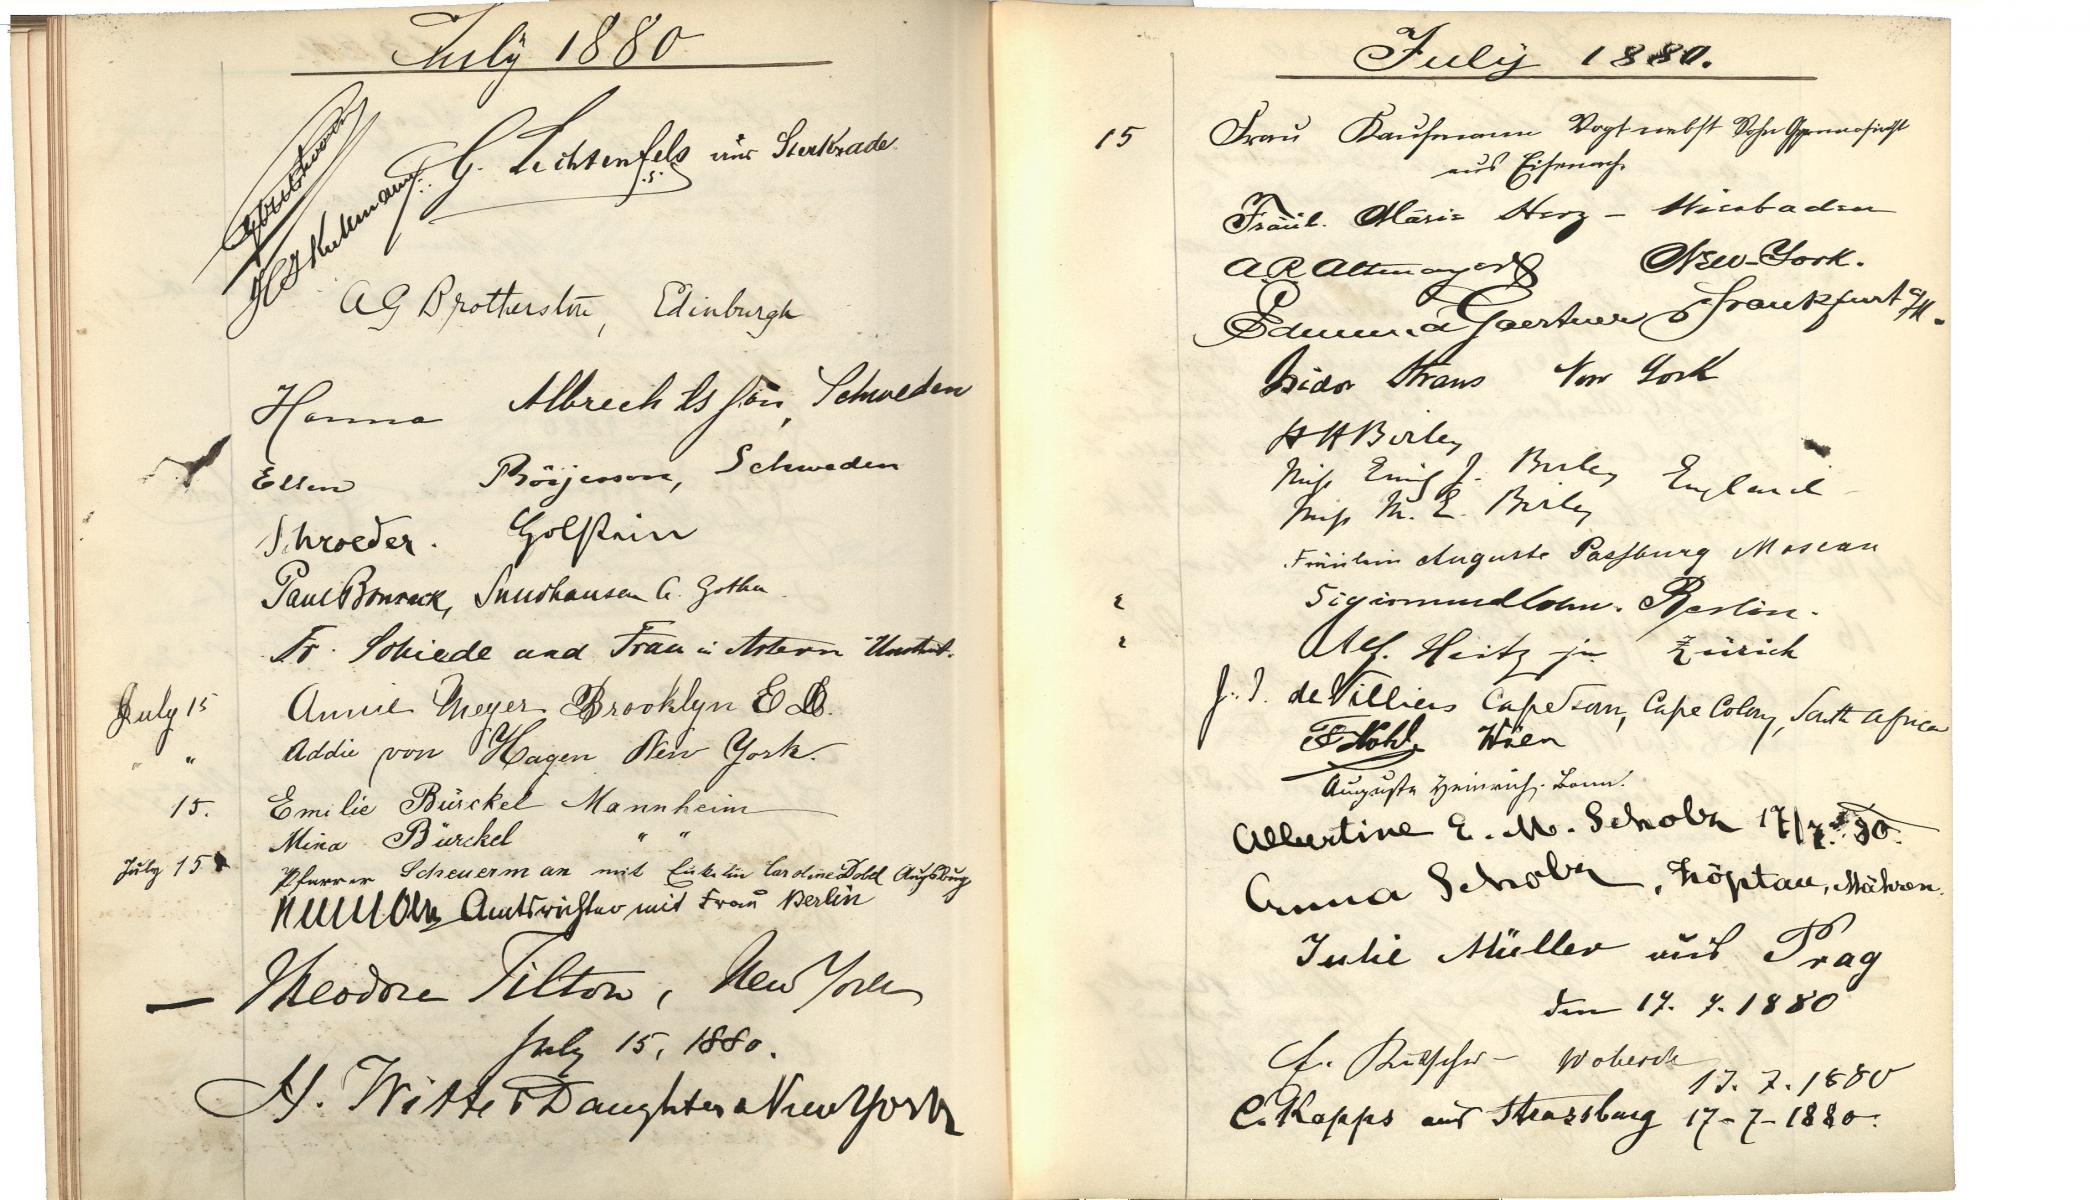 July 1880
G. Lichtenfels aus Sterkrade
A G Brotherston, Edinburgh
Hanna Albrechtsson, Schweden
Ellen Börjesson, Schweden
Schroeder. Golstein
Paul Bonsack, Sundhausen b. Gotha.
Fr. Schiede und Frau in Artern Unstrut.
July 15 Annie Meyer Brooklyn E D.
" " Addie von Hagen New York.
15. Emilie Bürckel Mannheim
Mina Bürckel " "
July 15 Pfarrer Scheuerman mit Enkelin Caroline Dold Augsburg
Amtsrichter mit Frau Berlin
— Theodore Tilton, New York
July 15, 1880.
H. Witte & Daughter New York
July 1880.
15 Frau Kaufmann Vogt nebst Sohn Gymnasiast
aus Eisenach
Fräul. Marie Herz – Wiesbaden
A. R. Altmayer New-York.
Edmund Gaertner Frankfurt a/M.
Isidor Straus New York
H H Birley
Miss Emily J. Birley England
Miss M. E. Birley
Fräulein Auguste Passburg Moscau
Sigismund Cohn. Berlin.
Alf. Heitz jr Zürich
J. J. de Villiers Cape Town, Cape Colony, South Africa
F Kohl Wien
Auguste Heinrich. Bonn.
Albertine E. M. Scholz 17/7. 80.
Anna Scholz, Zöptau, Mähren.
Julie Müller aus Prag
den 17. 7. 1880
17. 7. 1880
C. Kapps aus Strassburg 17-7-1880.